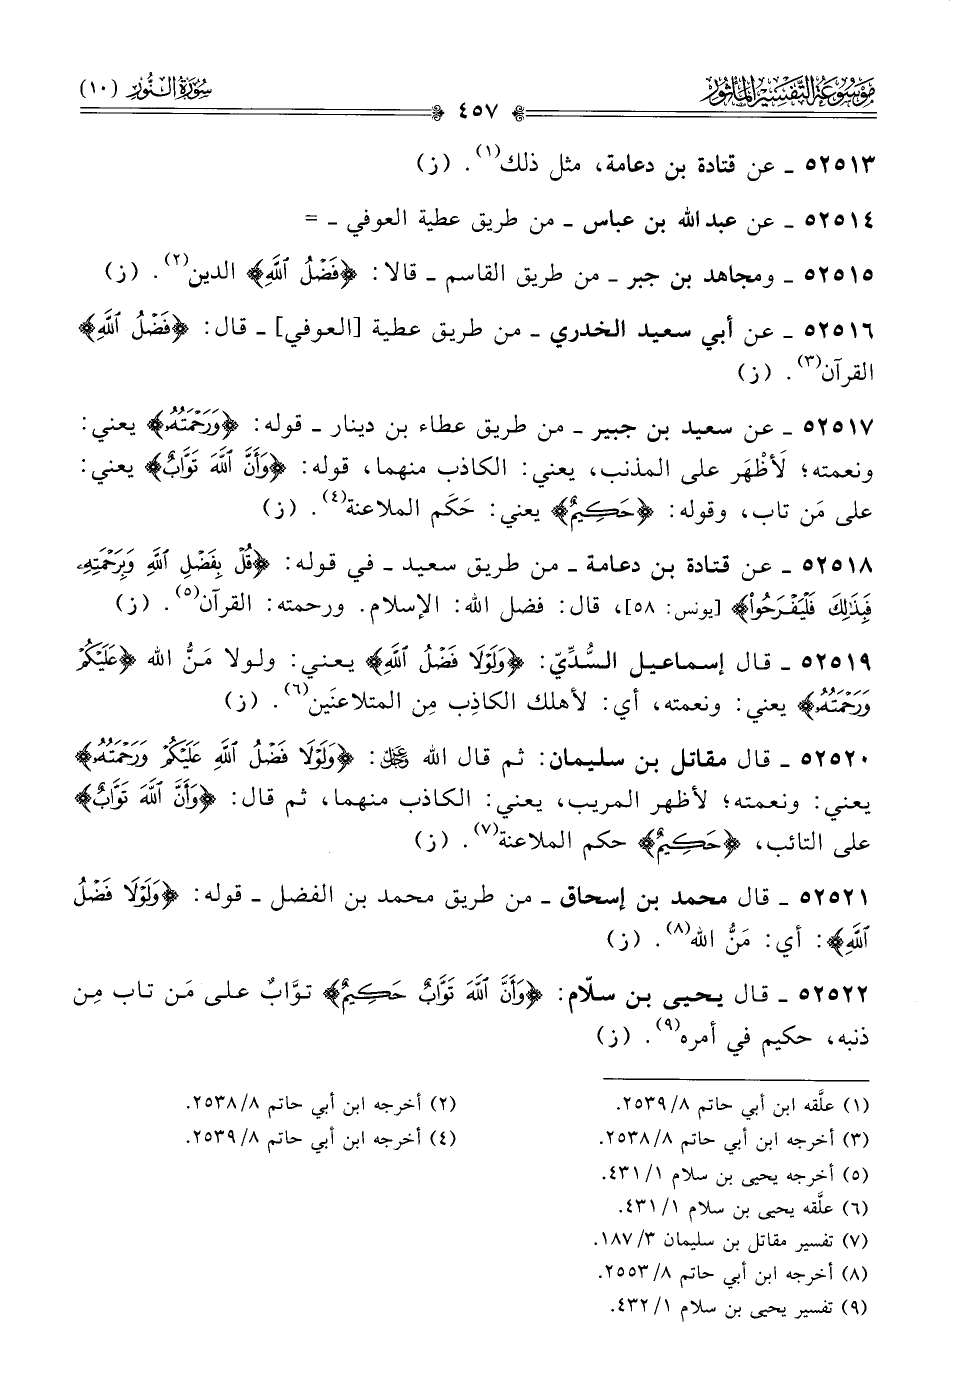 مَوْسُوعَة التَّفْسِير المَأثُور
سُورَةُ النُّور (١٠)
٤٥٧
٥٢٥١٣ ـ عن قتادة بن دعامة، مثل ذلك(١). (ز)
٥٢٥١٤ ـ عن عبد الله بن عباس ـ من طريق عطية العوفي ـ =
٥٢٥١٥ ـ ومجاهد بن جبر ـ من طريق القاسم ـ قالا: ﴿فَضْلُ ٱللَّهِ﴾ الدين(٢). (ز)
٥٢٥١٦ ـ عن أبي سعيد الخدري ـ من طريق عطية [العوفي] ـ قال: ﴿فَضْلُ ٱللَّهِ﴾
القرآن(٣). (ز)
٥٢٥١٧ ـ عن سعيد بن جبير ـ من طريق عطاء بن دينار ـ قوله: ﴿وَرَحْمَتُهُۥ﴾ يعني:
ونعمته؛ لَأظْهَر على المذنب، يعني: الكاذب منهما، قوله: ﴿وَأَنَّ ٱللَّهَ تَوَّابٌ﴾ يعني:
على مَن تاب، وقوله: ﴿حَكِيمٌ﴾ يعني: حَكَم الملاعنة(٤). (ز)
٥٢٥١٨ ـ عن قتادة بن دعامة ـ من طريق سعيد ـ في قوله: ﴿قُلْ بِفَضْلِ ٱللَّهِ وَبِرَحْمَتِهِۦ
فَبِذَٰلِكَ فَلْيَفْرَحُوا۟﴾ [يونس: ٥٨]، قال: فضل الله: الإسلام. ورحمته: القرآن(٥). (ز)
٥٢٥١٩ ـ قال إسماعيل السُّدِّيّ: ﴿وَلَوْلَا فَضْلُ ٱللَّهِ﴾ يعني: ولولا مَنُّ الله ﴿عَلَيْكُمْ
وَرَحْمَتُهُۥ﴾ يعني: ونعمته، أي: لأهلك الكاذِب مِن المتلاعنَين(٦). (ز)
٥٢٥٢٠ ـ قال مقاتل بن سليمان: ثم قال الله ﷻ: ﴿وَلَوْلَا فَضْلُ ٱللَّهِ عَلَيْكُمْ وَرَحْمَتُهُۥ﴾
يعني: ونعمته؛ لأظهر المريب، يعني: الكاذب منهما، ثم قال: ﴿وَأَنَّ ٱللَّهَ تَوَّابٌ﴾
على التائب، ﴿حَكِيمٌ﴾ حكم الملاعنة(٧). (ز)
٥٢٥٢١ ـ قال محمد بن إسحاق ـ من طريق محمد بن الفضل ـ قوله: ﴿وَلَوْلَا فَضْلُ
ٱللَّهِ﴾: أي: مَنُّ الله(٨). (ز)
٥٢٥٢٢ ـ قال يحيى بن سلّام: ﴿وَأَنَّ ٱللَّهَ تَوَّابٌ حَكِيمٌ﴾ توَّابٌ على مَن تاب مِن
ذنبه، حكيم في أمره(٩). (ز)
(١) علَّقه ابن أبي حاتم ٨/ ٢٥٣٩.
(٢) أخرجه ابن أبي حاتم ٨/ ٢٥٣٨.
(٣) أخرجه ابن أبي حاتم ٨/ ٢٥٣٨.
(٤) أخرجه ابن أبي حاتم ٨/ ٢٥٣٩.
(٥) أخرجه يحيى بن سلام ١/ ٤٣١.
(٦) علَّقه يحيى بن سلام ١/ ٤٣١.
(٧) تفسير مقاتل بن سليمان ٣/ ١٨٧.
(٨) أخرجه ابن أبي حاتم ٨/ ٢٥٥٣.
(٩) تفسير يحيى بن سلام ١/ ٤٣٢.